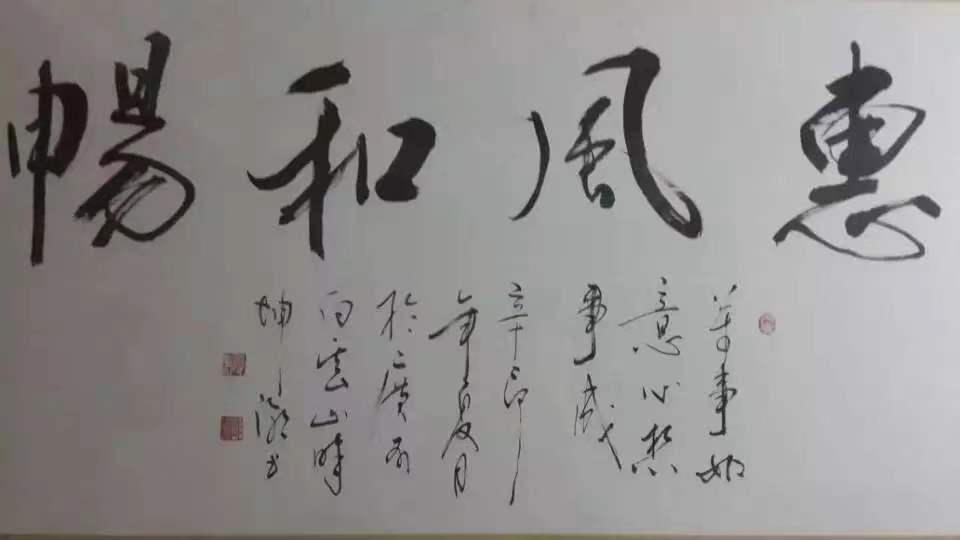 惠風和暢
萬事如
意心想
事成
辛卯
年夏月
於廣州
白雲山
坤 書